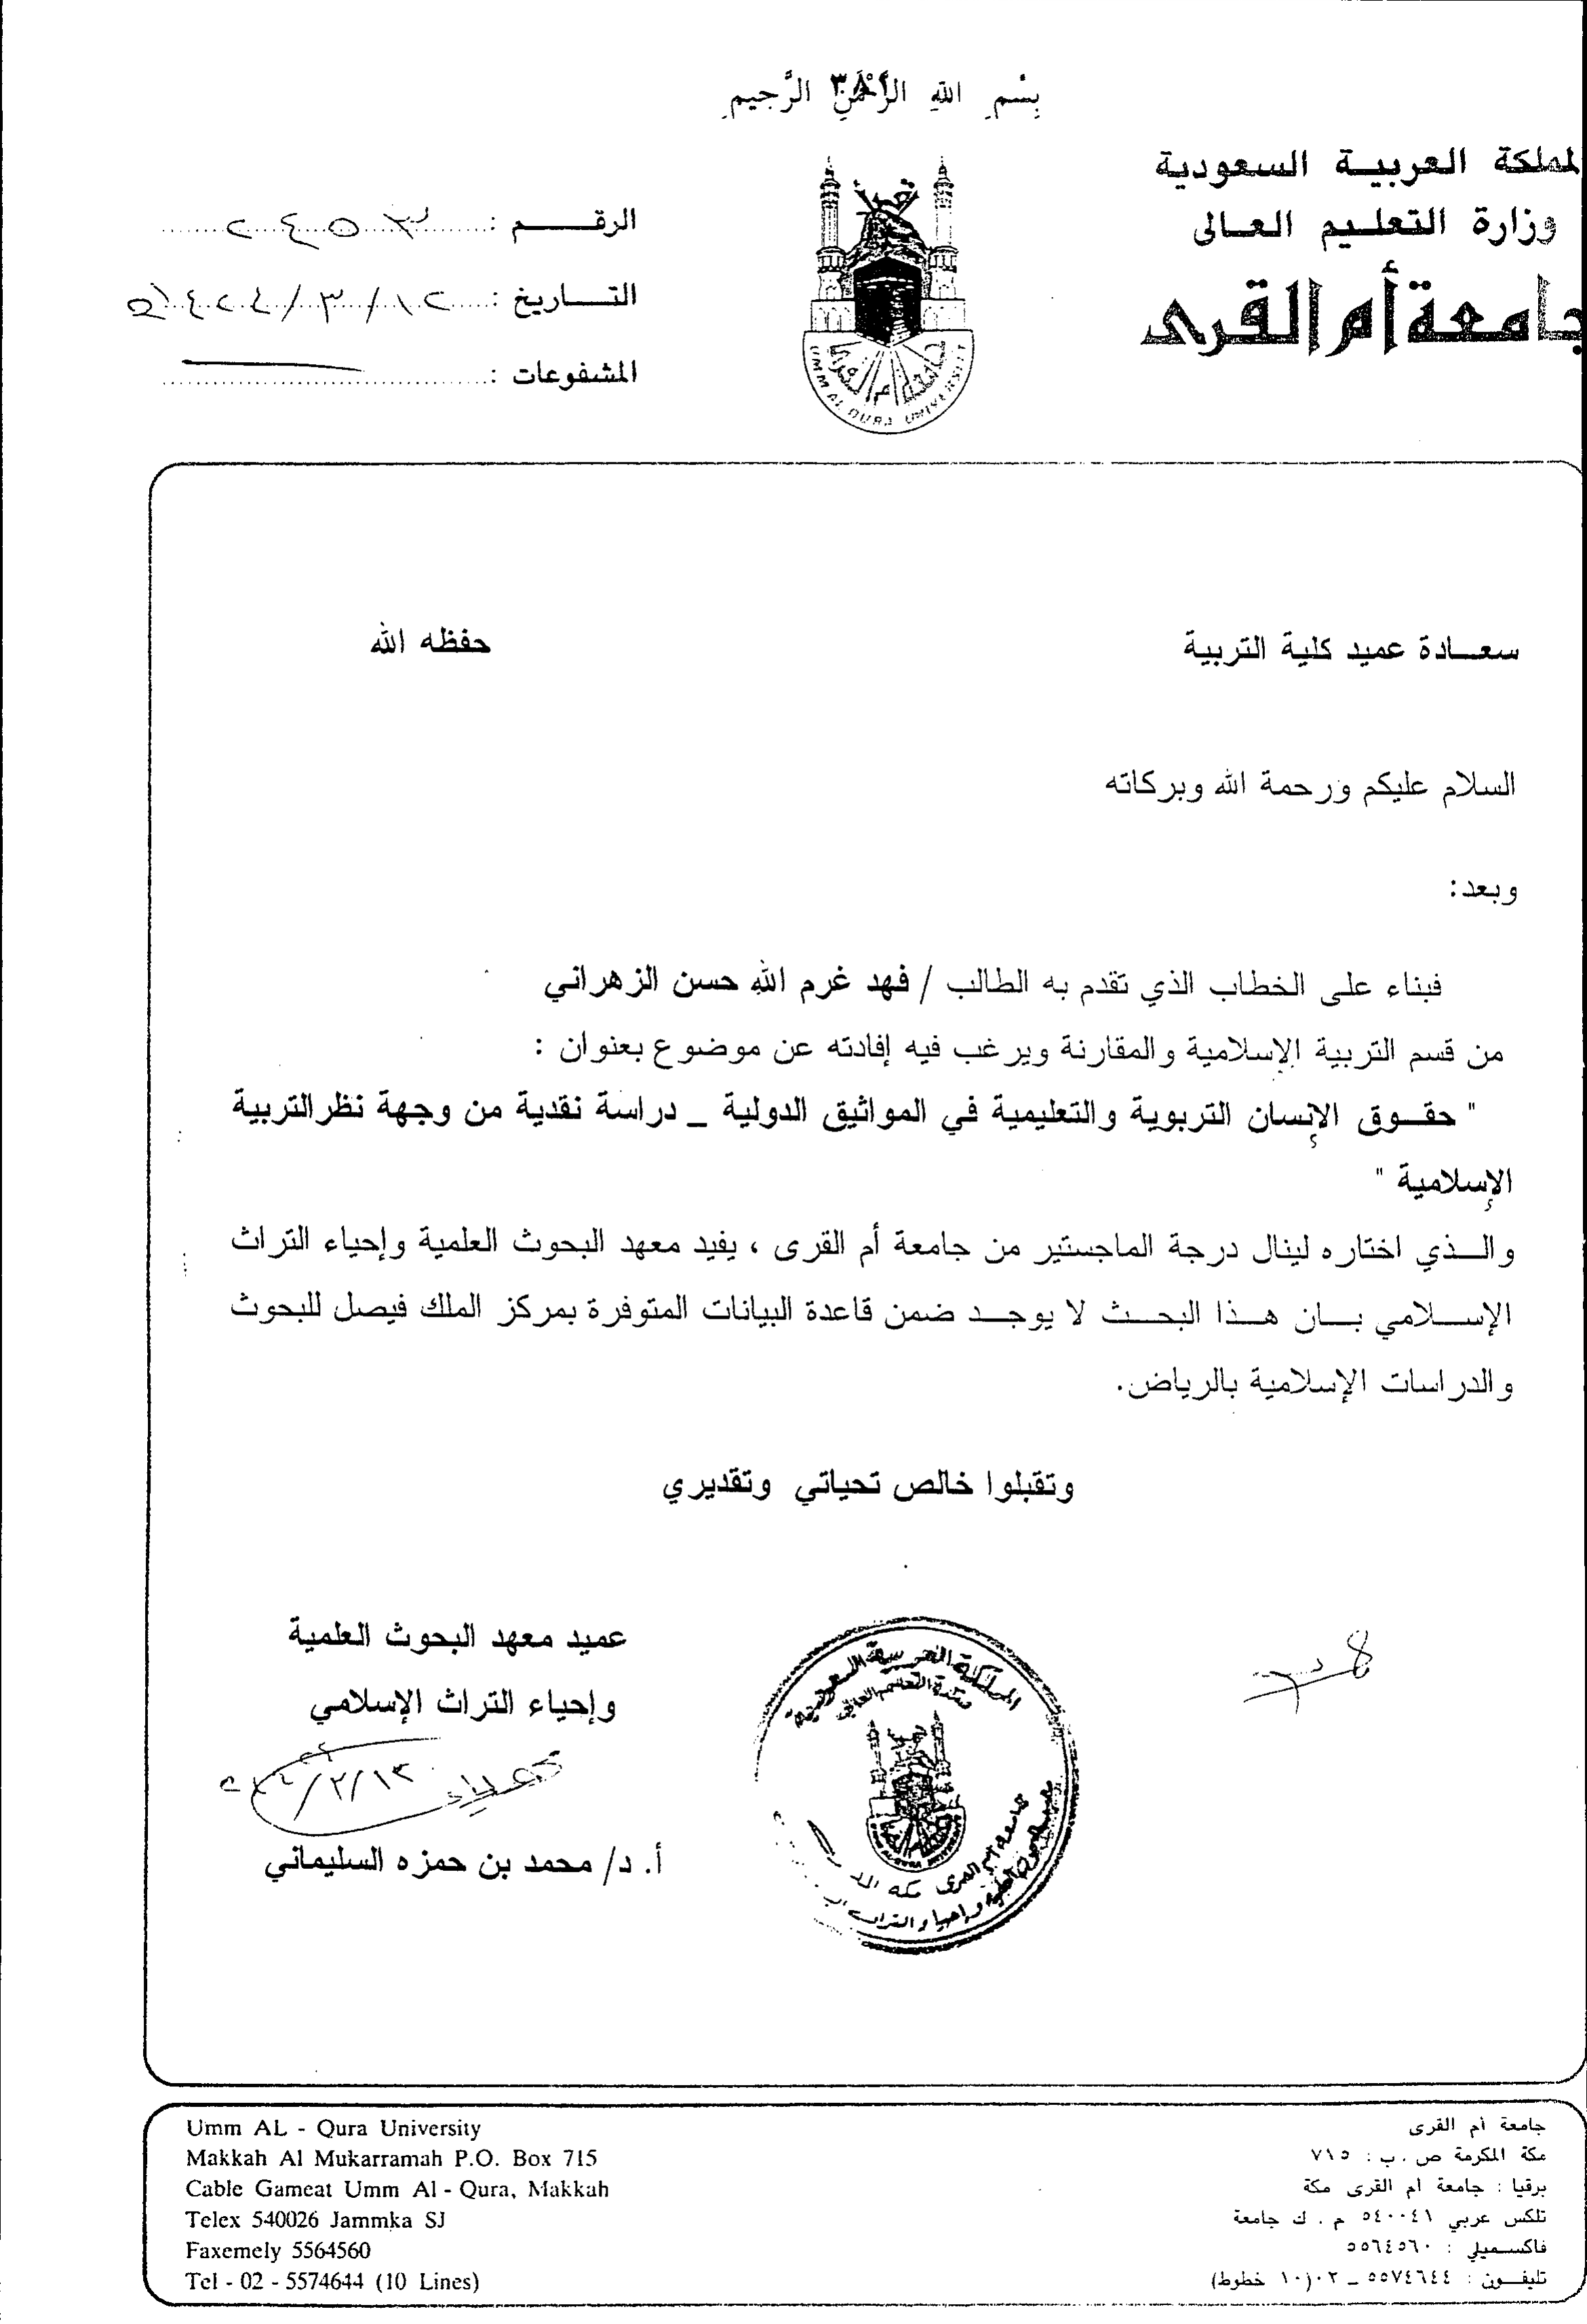 بِسْمِ اللهِ الرَّحْمَنِ الرَّحِيمِ
لمملكة العربية السعودية
وزارة التعليم العالى
جامعة أم القرى
الرقم : ٢٤٥٣
التاريخ : ١٢/٣/١٤٢٤هـ
المشفوعات :
UMM AL QURA UNIVERSITY
سعادة عميد كلية التربية حفظه الله
السلام عليكم ورحمة الله وبركاته
وبعد:
فبناء على الخطاب الذي تقدم به الطالب / فهد غرم الله حسن الزهراني
من قسم التربية الإسلامية والمقارنة ويرغب فيه إفادته عن موضوع بعنوان :
" حقوق الإنسان التربوية والتعليمية في المواثيق الدولية _ دراسة نقدية من وجهة نظرالتربية
الإسلامية "
والذي اختاره لينال درجة الماجستير من جامعة أم القرى ، يفيد معهد البحوث العلمية وإحياء التراث
الإسلامي بان هذا البحث لا يوجد ضمن قاعدة البيانات المتوفرة بمركز الملك فيصل للبحوث
والدراسات الإسلامية بالرياض.
وتقبلوا خالص تحياتي وتقديري
عميد معهد البحوث العلمية
وإحياء التراث الإسلامي
أ. د/ محمد بن حمزه السليماني
المملكة العربية السعودية
جامعة أم القرى
جامعة أم القرى
مكة المكرمة ص . ب : ٧١٥
برقيا : جامعة أم القرى مكة
تلكس عربي ٥٤٠٠٤١ م . ك جامعة
فاكسميلي : ٥٥٦٤٥٦٠
تليفون : ٥٥٧٤٦٤٤ – ٠٢ (١٠ خطوط)
Umm AL - Qura University
Makkah Al Mukarramah P.O. Box 715
Cable Gameat Umm Al - Qura, Makkah
Telex 540026 Jammka SJ
Faxemely 5564560
Tel - 02 - 5574644 (10 Lines)